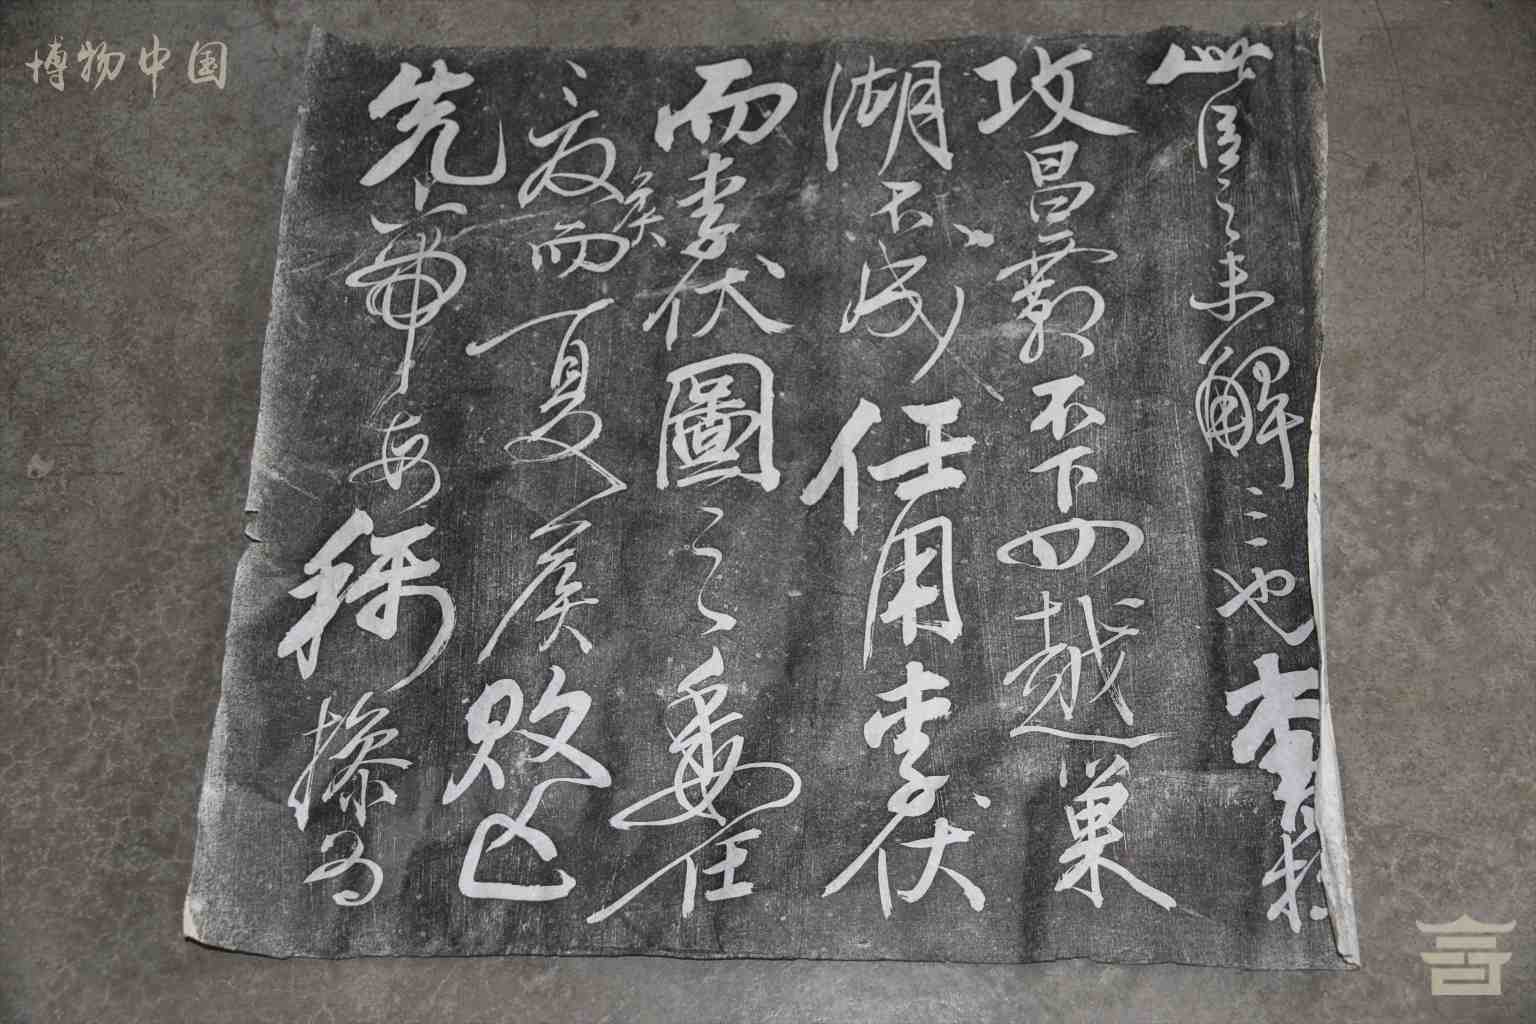 博物中国
此臣之未解三也曹操
攻昌霸不下四越巢
湖不成任用李伏
而李伏圖之委任
夏侯而夏侯敗亡
先帝每稱操為